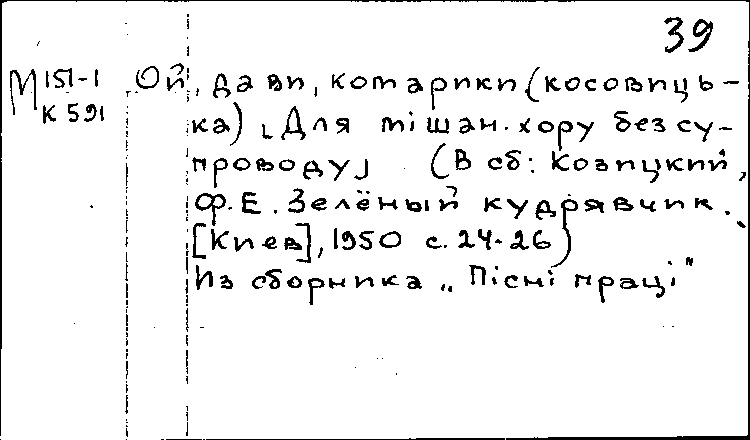 39
М 151-1 Ой, да ви, комарики (косовиць-
К 591 ка) [Для мішан. хору без су-
проводу] (В сб: Козицкий,
Ф. Е. Зелёный кудрявчик.
[Киев], 1950 с. 24-26)
Из сборника „Пісні праці"